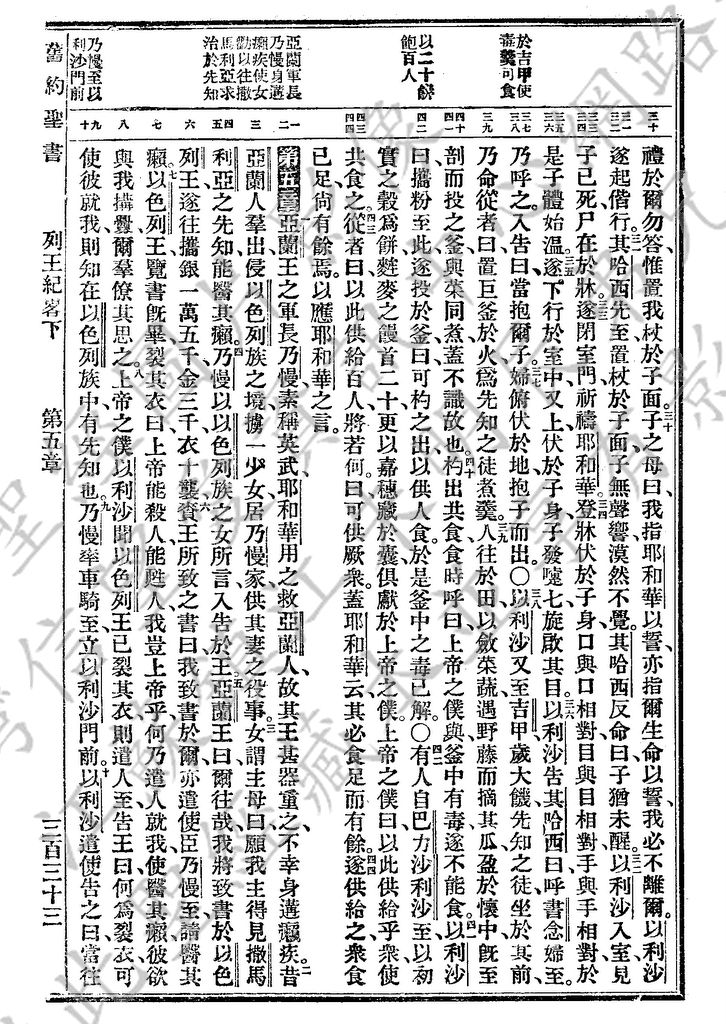 於吉甲使
毒羹可食
以二十餅
飽百人
亞蘭軍長
乃慢身遘
癩疾使女
勸以往撒
馬利亞求
治於先知
乃慢至以
利沙門前
三十
三一
三二
三三
三四
三五
三六
三七
三八
三九
四十
四一
四二
四三
四四
一二
三
四五
六
七
八
九十
禮於爾勿答惟置我杖於子面三十子之母曰我指耶和華以誓亦指爾生命以誓我必不離爾以利沙
遂起偕行三一其哈西先至置杖於子面子無聲響漠然不覺其哈西反命曰子猶未醒三二以利沙入室見
子已死尸在於牀三三遂閉室門祈禱耶和華三四登牀伏於子身口與口相對目與目相對手與手相對於
是子體始溫三五遂下行於室中又上伏於子身子發嚏七旋啟其目三六以利沙告其哈西曰呼書念婦至
乃呼之入告曰當抱爾子三七婦俯伏於地抱子而出〇三八以利沙又至吉甲歲大饑先知之徒坐於其前
乃命從者曰置巨釜於火爲先知之徒煮羹三九人往於田以斂菜蔬遇野藤而摘其瓜盈於懷中旣至
剖而投之釜與菜同煮蓋不識故也四十杓出共食食時呼曰上帝之僕與釜中有毒遂不能食四一以利沙
曰攜粉至此遂投於釜曰可杓之出以供人食於是釜中之毒已解〇四二有人自巴力沙利沙至以初
實之穀爲餅麰麥之饅首二十更以嘉穗藏於囊俱獻於上帝之僕上帝之僕曰以此供給乎衆使
共食之四三從者曰以此供給百人將若何曰可供厥衆蓋耶和華云其必食足而有餘四四遂供給之衆食
已足尙有餘焉以應耶和華之言
第五章一亞蘭王之軍長乃慢素稱英武耶和華用之救亞蘭人故其王甚器重之不幸身遘癩疾二昔
亞蘭人羣出侵以色列族之境擄一少女居乃慢家供其妻之役事三女謂主母曰願我主得見撒馬
利亞之先知能醫其癩四乃慢以以色列族之女所言入告於王五亞蘭王曰爾往哉我將致書於以色
列王遂往攜銀一萬五千金三千衣十襲六賫王所致之書曰我致書於爾亦遣使臣乃慢至請醫其
癩七以色列王覽書旣畢裂其衣曰上帝能殺人能甦人我豈上帝乎何乃遣人就我使醫其癩彼欲
與我搆釁爾羣僚其思之八上帝之僕以利沙聞以色列王已裂其衣則遣人至告王曰何爲裂衣可
使彼就我則知在以色列族中有先知也九乃慢率車騎至立以利沙門前十以利沙遣使告之曰當往
舊約聖書 列王紀畧下 第五章 三百三十三